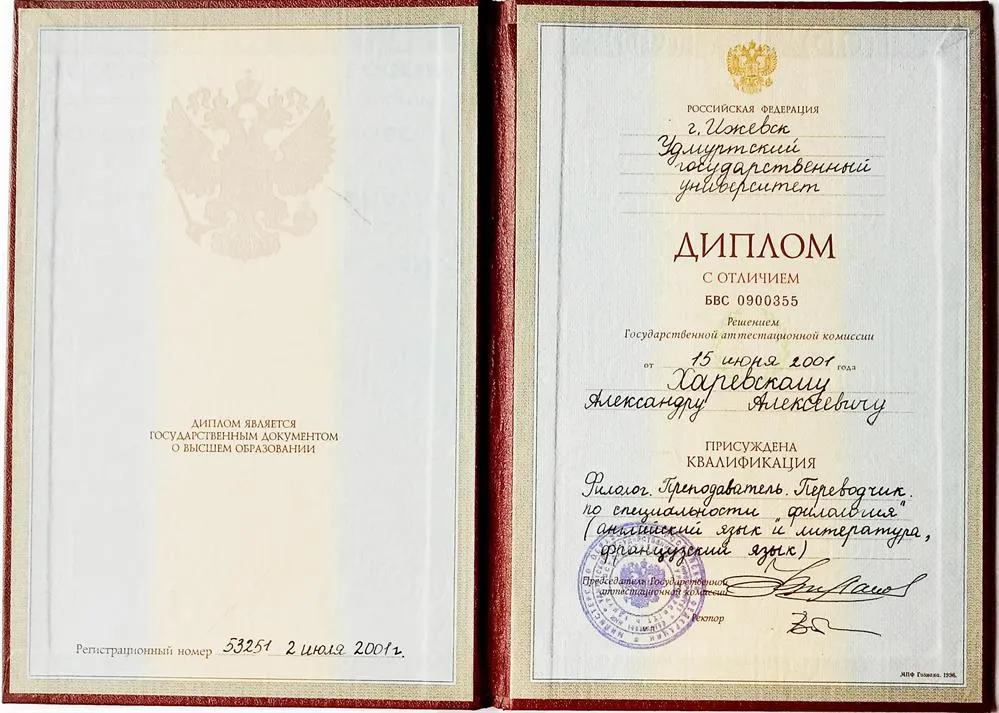 ДИПЛОМ ЯВЛЯЕТСЯ
ГОСУДАРСТВЕННЫМ ДОКУМЕНТОМ
О ВЫСШЕМ ОБРАЗОВАНИИ
Регистрационный номер 53251 2 июля 2001 г.
РОССИЙСКАЯ ФЕДЕРАЦИЯ
г. Ижевск
Удмуртский
государственный
университет
ДИПЛОМ
С ОТЛИЧИЕМ
БВС 0900355
Решением
Государственной аттестационной комиссии
от 15 июня 2001 года
Харевскому
Александру Алексеевичу
ПРИСУЖДЕНА
КВАЛИФИКАЦИЯ
Филолог. Преподаватель. Переводчик.
по специальности „филология"
(английский язык и литература,
французский язык)
Председатель Государственной
аттестационной комиссии
Ректор
МПФ Гознака. 1996.